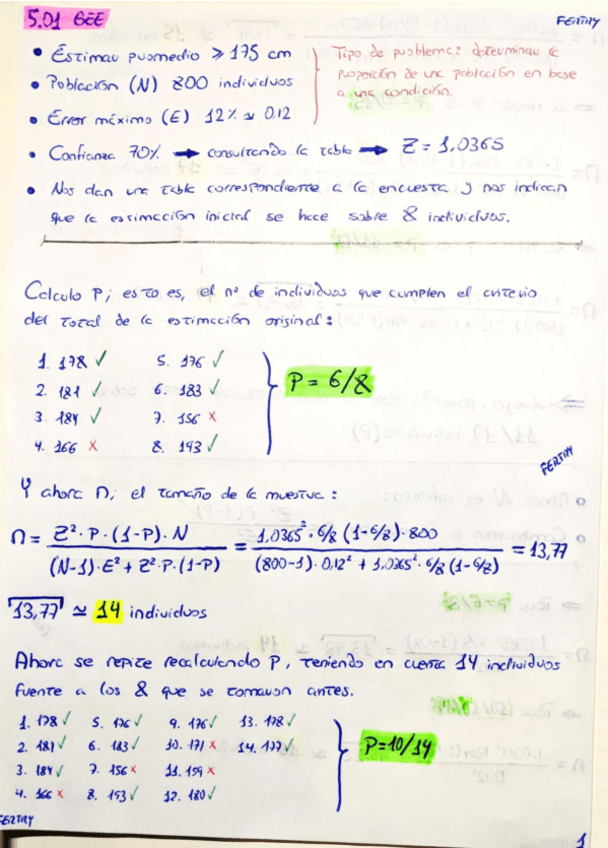 5.01 GEE
FERTRY
• Estimar promedio ⩾ 175 cm
• Población (N) 800 individuos
• Error máximo (E) 12% ≃ 0.12
Tipo de problema: determinar la
proporción de una población en base
a una condición.
• Confianza 70% → consultando la tabla → Z = 1,0365
• Nos dan una tabla correspondiente a la encuesta y nos indican
que la estimación inicial se hace sobre 8 individuos.
Calculo P; esto es, el nº de individuos que cumplen el criterio
del total de la estimación original:
1. 178 ✓ 5. 176 ✓
2. 181 ✓ 6. 183 ✓
3. 184 ✓ 7. 156 ×
4. 166 × 8. 193 ✓
P = 6/8
FERTRY
Y ahora n; el tamaño de la muestra:
n = Z²·P·(1-P)·N / (N-1)·E² + Z²·P·(1-P) = 1,0365²·6/8 (1-6/8)·800 / (800-1)·0,12² + 1,0365²·6/8 (1-6/8) = 13,77
13,77 ≃ 14 individuos
Ahora se repite recalculando P, teniendo en cuenta 14 individuos
frente a los 8 que se tomaron antes.
1. 178 ✓ 5. 176 ✓ 9. 176 ✓ 13. 178 ✓
2. 181 ✓ 6. 183 ✓ 10. 171 × 14. 177 ✓
3. 184 ✓ 7. 156 × 11. 159 ×
4. 166 × 8. 193 ✓ 12. 180 ✓
P = 10/14
FERTRY
1